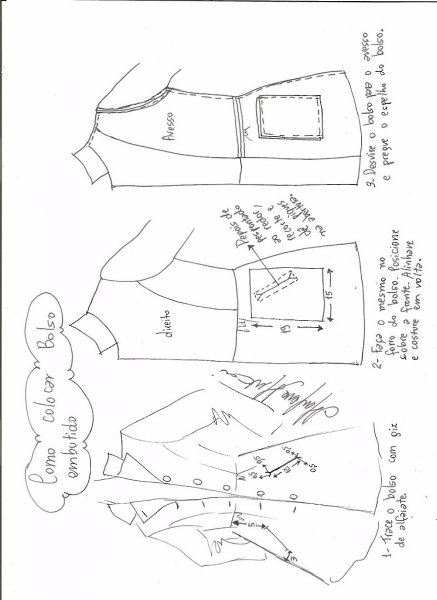 Como colocar Bolso
embutido
1- Trace o bolso com giz
de alfaiate.
0,5
0,5
0,5
3
2- Faça o mesmo no
forro do bolso. Posicione
sobre a frente. Alinhave
e costure em volta.
direito
Depois de
pespontado
ao redor,
recorte e
dê piques
na abertura.
19
15
3- Desvire o bolso para o avesso
e pregue o espelho do bolso.
Avesso